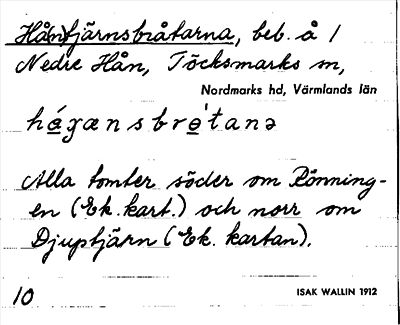 Hån)tjärnsbråtarna, beb. å 1
Nedre Hån, Töcksmarks sn,
Nordmarks hd, Värmlands län
Alla tomter söder om Rönning-
en (Ek. kart.) och norr om
Djuptjärn (Ek. kartan).
10
ISAK WALLIN 1912